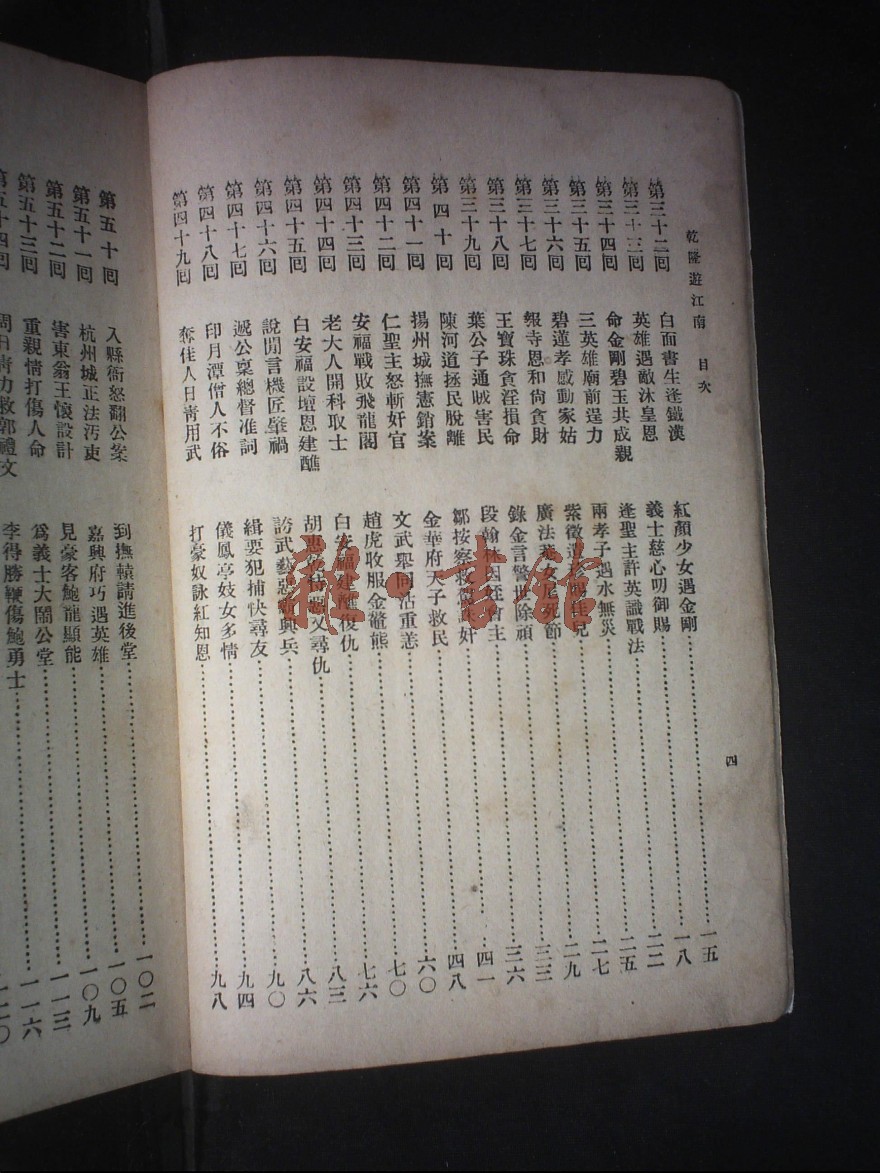 乾隆遊江南 目次
四
第三十二回 白面書生逢鐵漢 紅顏少女遇金剛 一五
第三十三回 英雄遇敵沐皇恩 義士慈心叨御賜 一八
第三十四回 命金剛碧玉共成親 逢聖主許英識戰法 二二
第三十五回 三英雄廟前逞力 兩孝子遇水無災 二五
第三十六回 碧蓮孝感動家姑 紫微 二七
第三十七回 報寺恩和尚貪財 廣法 死節 二九
第三十八回 王寶珠貪淫損命 錄金言警世除頑 三三
第三十九回 葉公子通賊害民 段翰林因 會主 三六
第四十回 陳河道拯民脫離 鄒按察救 奸 四一
第四十一回 揚州城撫憲銷案 金華府天子救民 四八
第四十二回 仁聖主怒斬奸官 文武舉同沾重恙 六〇
第四十三回 安福戰敗飛龍閣 趙虎收服金鼇熊 七〇
第四十四回 老大人開科取士 白安福建醮復仇 七六
第四十五回 白安福設壇恩建醮 胡惠乾 惡又尋仇 八三
第四十六回 說閒言機匠肇禍 誇武藝惡 興兵 八六
第四十七回 遞公稟總督准詞 緝要犯捕快尋友 九〇
第四十八回 印月潭僧人不俗 儀鳳亭妓女多情 九四
第四十九回 奪佳人日青用武 打豪奴詠紅知恩 九八
第五十回 入縣衙怒翻公案 到撫轅請進後堂 一〇二
第五十一回 杭州城正法汚吏 嘉興府巧遇英雄 一〇五
第五十二回 害東翁王懷設計 見豪客鮑龍顯能 一〇九
第五十三回 重親情打傷人命 爲義士大鬧公堂 一一三
第五十四回 周日青力救郭禮文 李得勝鞭傷鮑勇士 一一六
一二〇
雜·書館